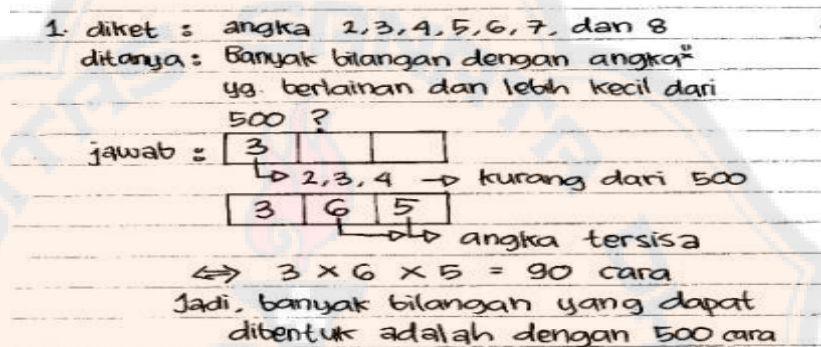 1. diket : angka 2,3,4,5,6,7, dan 8
ditanya : Banyak bilangan dengan angka"
yg. berlainan dan lebih kecil dari
500 ?
jawab : 3
↳ 2,3,4 → kurang dari 500
3 6 5
↳↳ angka tersisa
⇔ 3 × 6 × 5 = 90 cara
Jadi, banyak bilangan yang dapat
dibentuk adalah dengan 500 cara